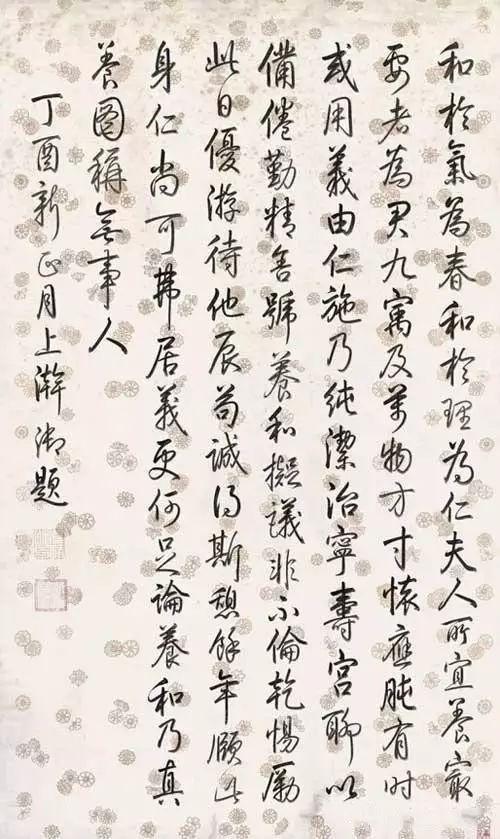 和於氣為春和於理為仁夫人所宜養㝡
要者為君九寓及萬物方寸懷應肫有时
或用義由仁施乃純潔治寧壽宮聊以
備倦勤精舍號養和擬議非不倫乾惕勵
此日優游待他辰苟誠得斯憩餘年願此
身仁尚可居義更何足論養和乃真
養圖稱無事人
丁酉新正月上澣御題